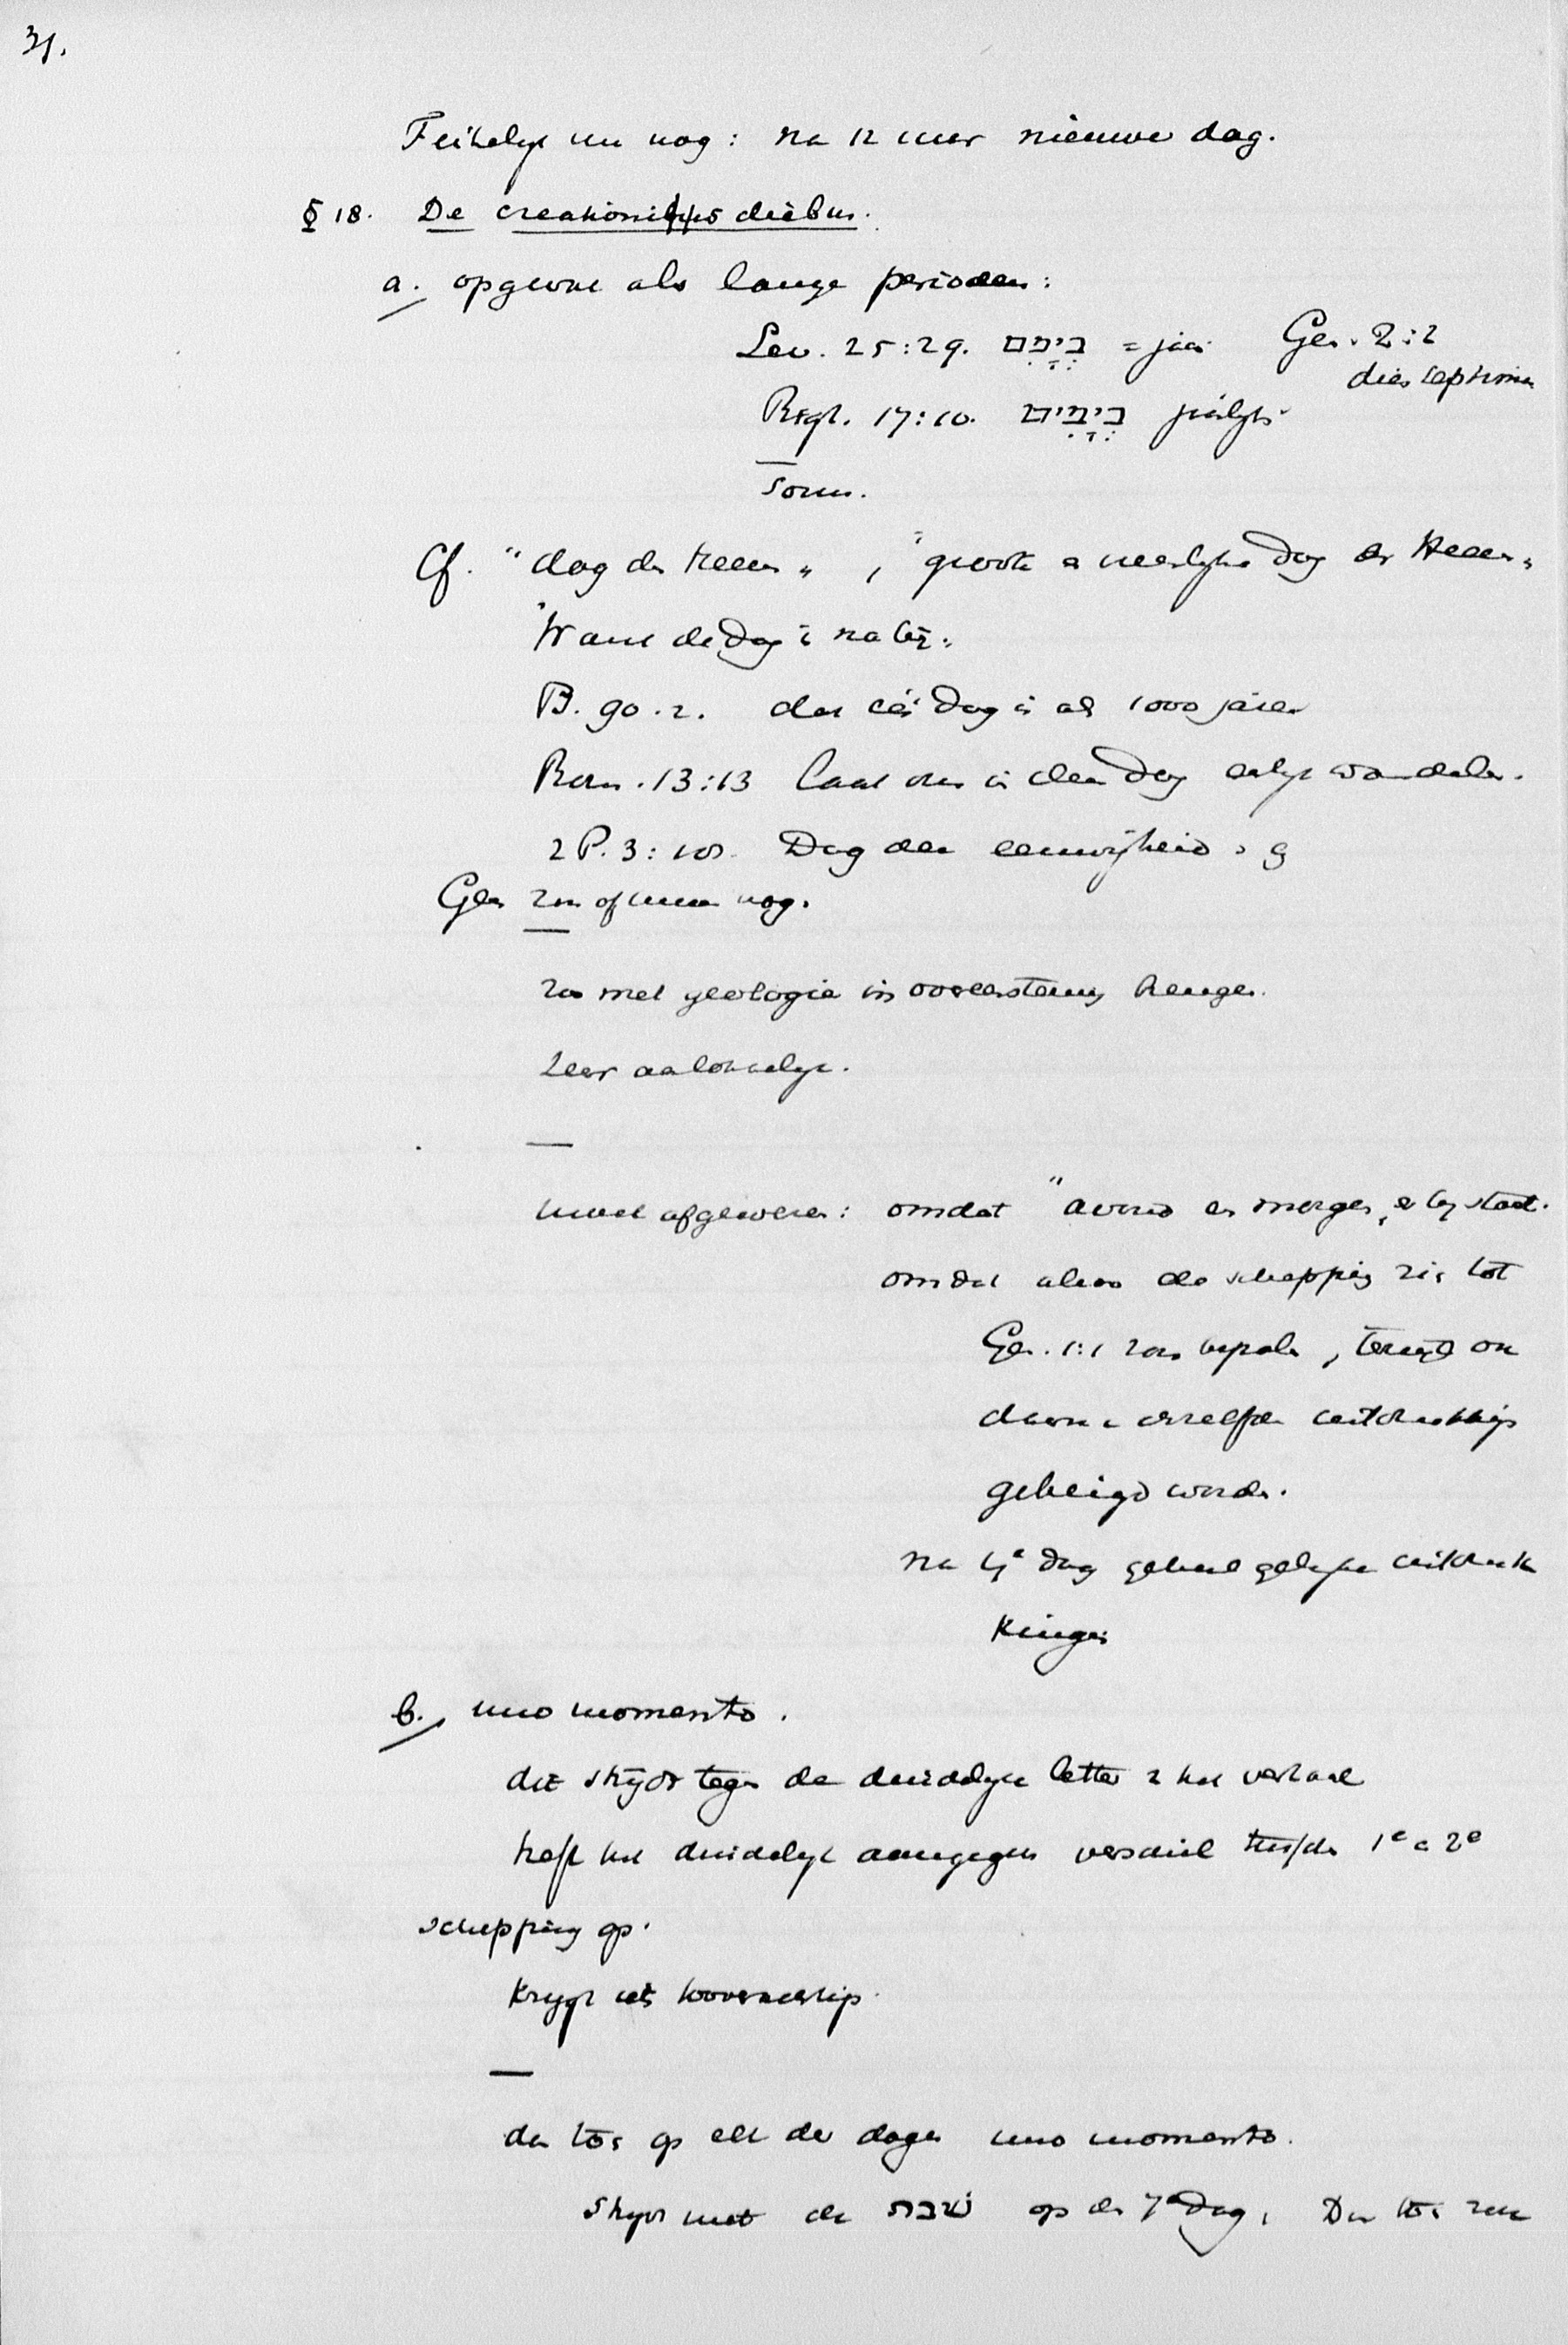 31.
Feitelyk nu nog: na 12 uur nieuwe dag.
§ 18. De creationis diebus.
a. opgevat als lange perioden:
Lev. 25:29. יָמִים = jaar Gen. 2:2
dies septima
Richt. 17:10. לַיָּמִים jaarlyks
Som.
Cf. "dag des Heeren", "groote en heerlyke Dag des Heeren"
"Want de Dag is naby"
Ps. 90.2. dat één Dag is als 1000 jaren
Rom. 13:13 Laat ons in den Dag eerlyk wandelen.
2 P. 3: Dag der eeuwigheid
Geen zon of maan nog.
Zoo met geologie in overeenstemming brengen.
Zeer aanlokkelyk.
moet afgewezen: omdat "avond en morgen" er by staat.
omdat alsdan de schepping zich tot
Gen. 1:1 zou bepalen, terwyl ook
daarna dezelfde uitdrukking
gebezigd worden.
na 4e dag geheel gelyke uitdruk
kingen
b. uno momento.
dit strydt tegen de duidelyke letter van het verhaal
heft het duidelyk aangegeven verschil tusschen 1e en 2e
schepping op.
Krygt iets tooverachtigs.
de toe op elk der dagen uno momento.
Strydt met de שבת op den 7e Dag.